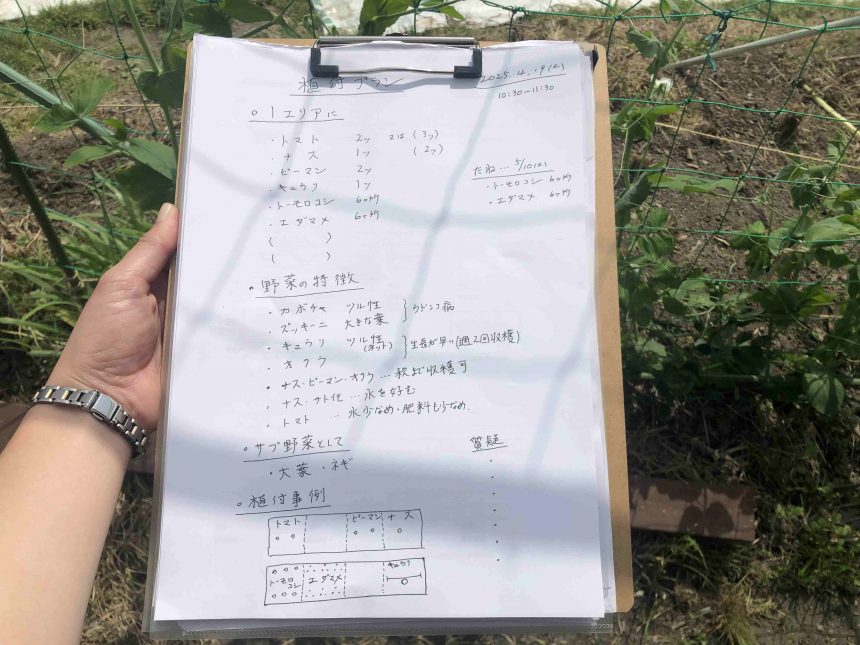 植付プラン
2025.4.19(土)
10:30~11:30
○1エリアに
・トマト 2ッ 又は(3ッ)
・ナス 1ッ (2ッ)
・ピーマン 2ッ
・キュウリ 1ッ
・トーモロコシ 6ヶ所
・エダマメ 6ヶ所
( )
( )
たね… 5/10(土)
・トーモロコシ 6ヶ所
・エダマメ 6ヶ所
・野菜の特徴
・カボチャ ツル性
・ズッキーニ 大きな葉 }ウドンコ病
・キュウリ ツル性(ネット)
・オクラ }生長が早い(週2回収穫)
・ナス・ピーマン・オクラ…秋まで収穫可
・ナス・サトイモ…水を好む
・トマト …水少なめ・肥料も少なめ.
○サブ野菜として
・大葉・ネギ
質疑
○植付事例
トマト ピーマン ナス
トーモロコシ エダマメ キュウリ